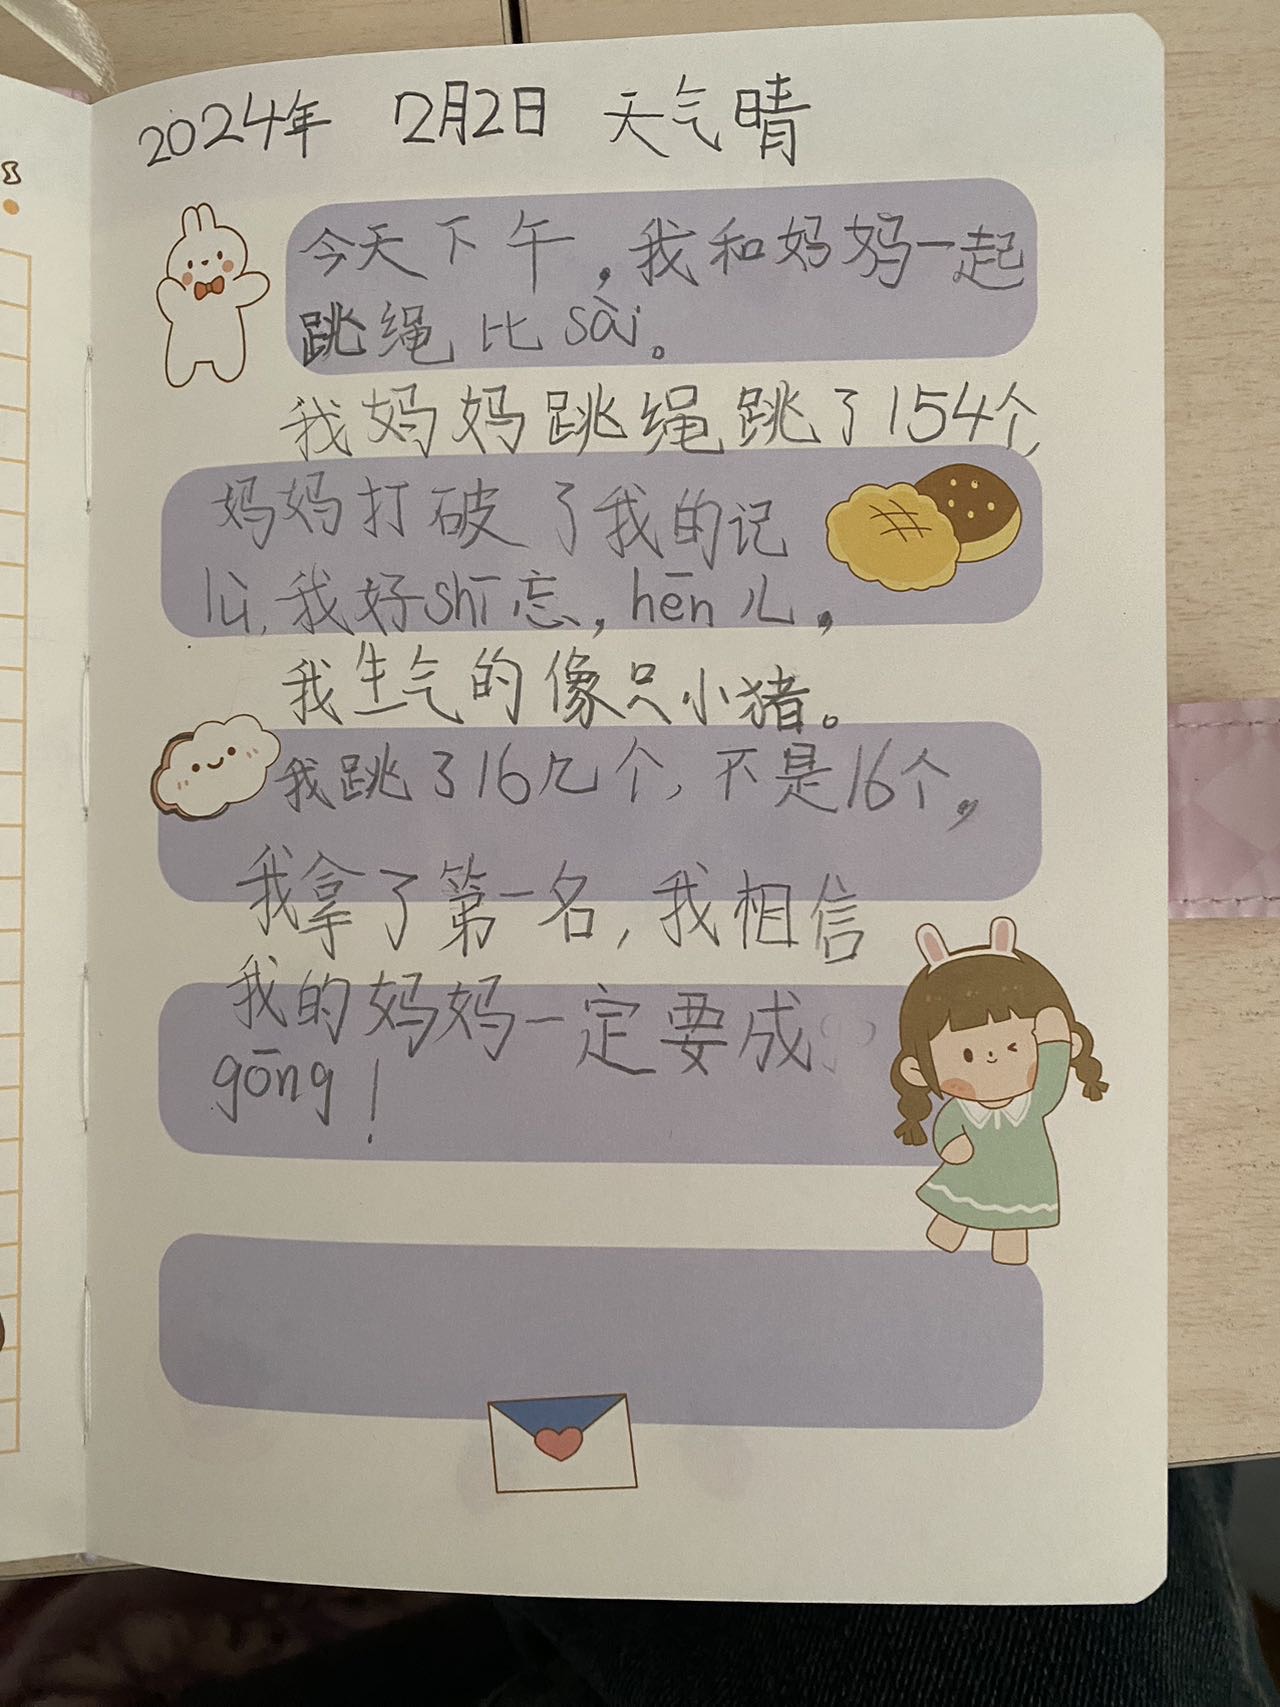 2024年 2月2日 天气晴
今天下午，我和妈妈一起
跳绳比sài。
我妈妈跳绳跳了154个，
妈妈打破了我的记
lù，我好shī忘，hēn儿，
我生气的像只小猪。
我跳了16几个，不是16个，
我拿了第一名，我相信
我的妈妈一定要成
gōng！